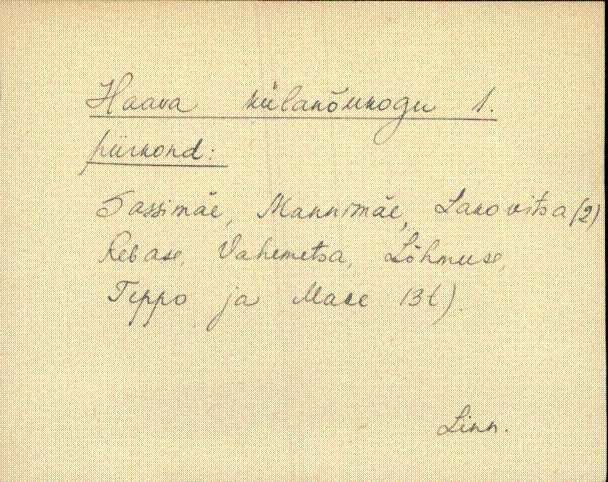 Haava külanõukogu 1.
piirkond:
Sassimäe, Mannimäe, Lakovitsa (2)
Rebase, Vahemetsa, Lõhmuse,
Teppo ja Mäe 13t).
Linn.